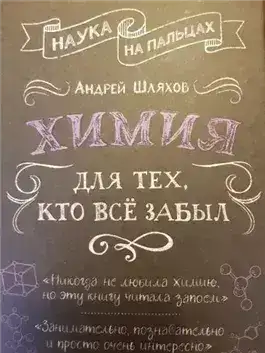 НАУКА
НА ПАЛЬЦАХ
АНДРЕЙ ШЛЯХОВ
ХИМИЯ
ДЛЯ ТЕХ,
КТО ВСЁ ЗАБЫЛ
«Никогда не любила химию,
но эту книгу читала запоем»
«Занимательно, познавательно
и просто очень интересно»